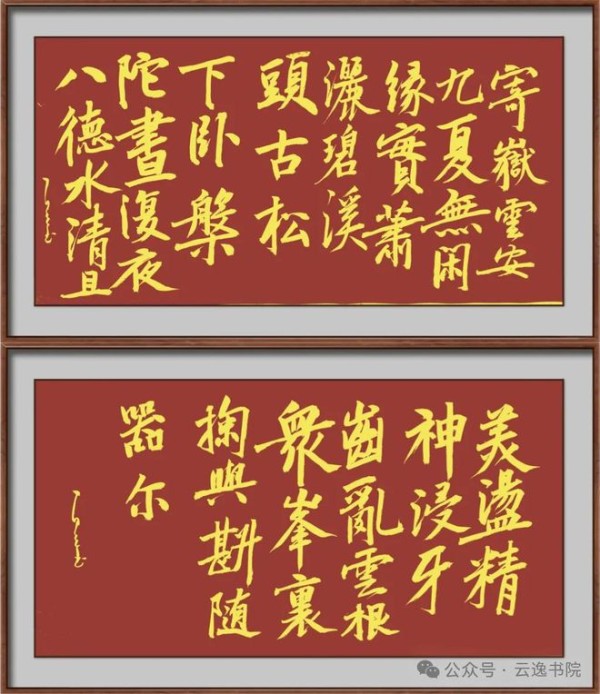 寄嶽雲安
九夏無閑
缘實蕭
灑碧溪
頭古松
下卧槃
陀晝復夜
八德水清且
美盪精
神浸牙
齒亂雲根
衆峯裏
掬與斟随
器尔
公众号·云逸书院